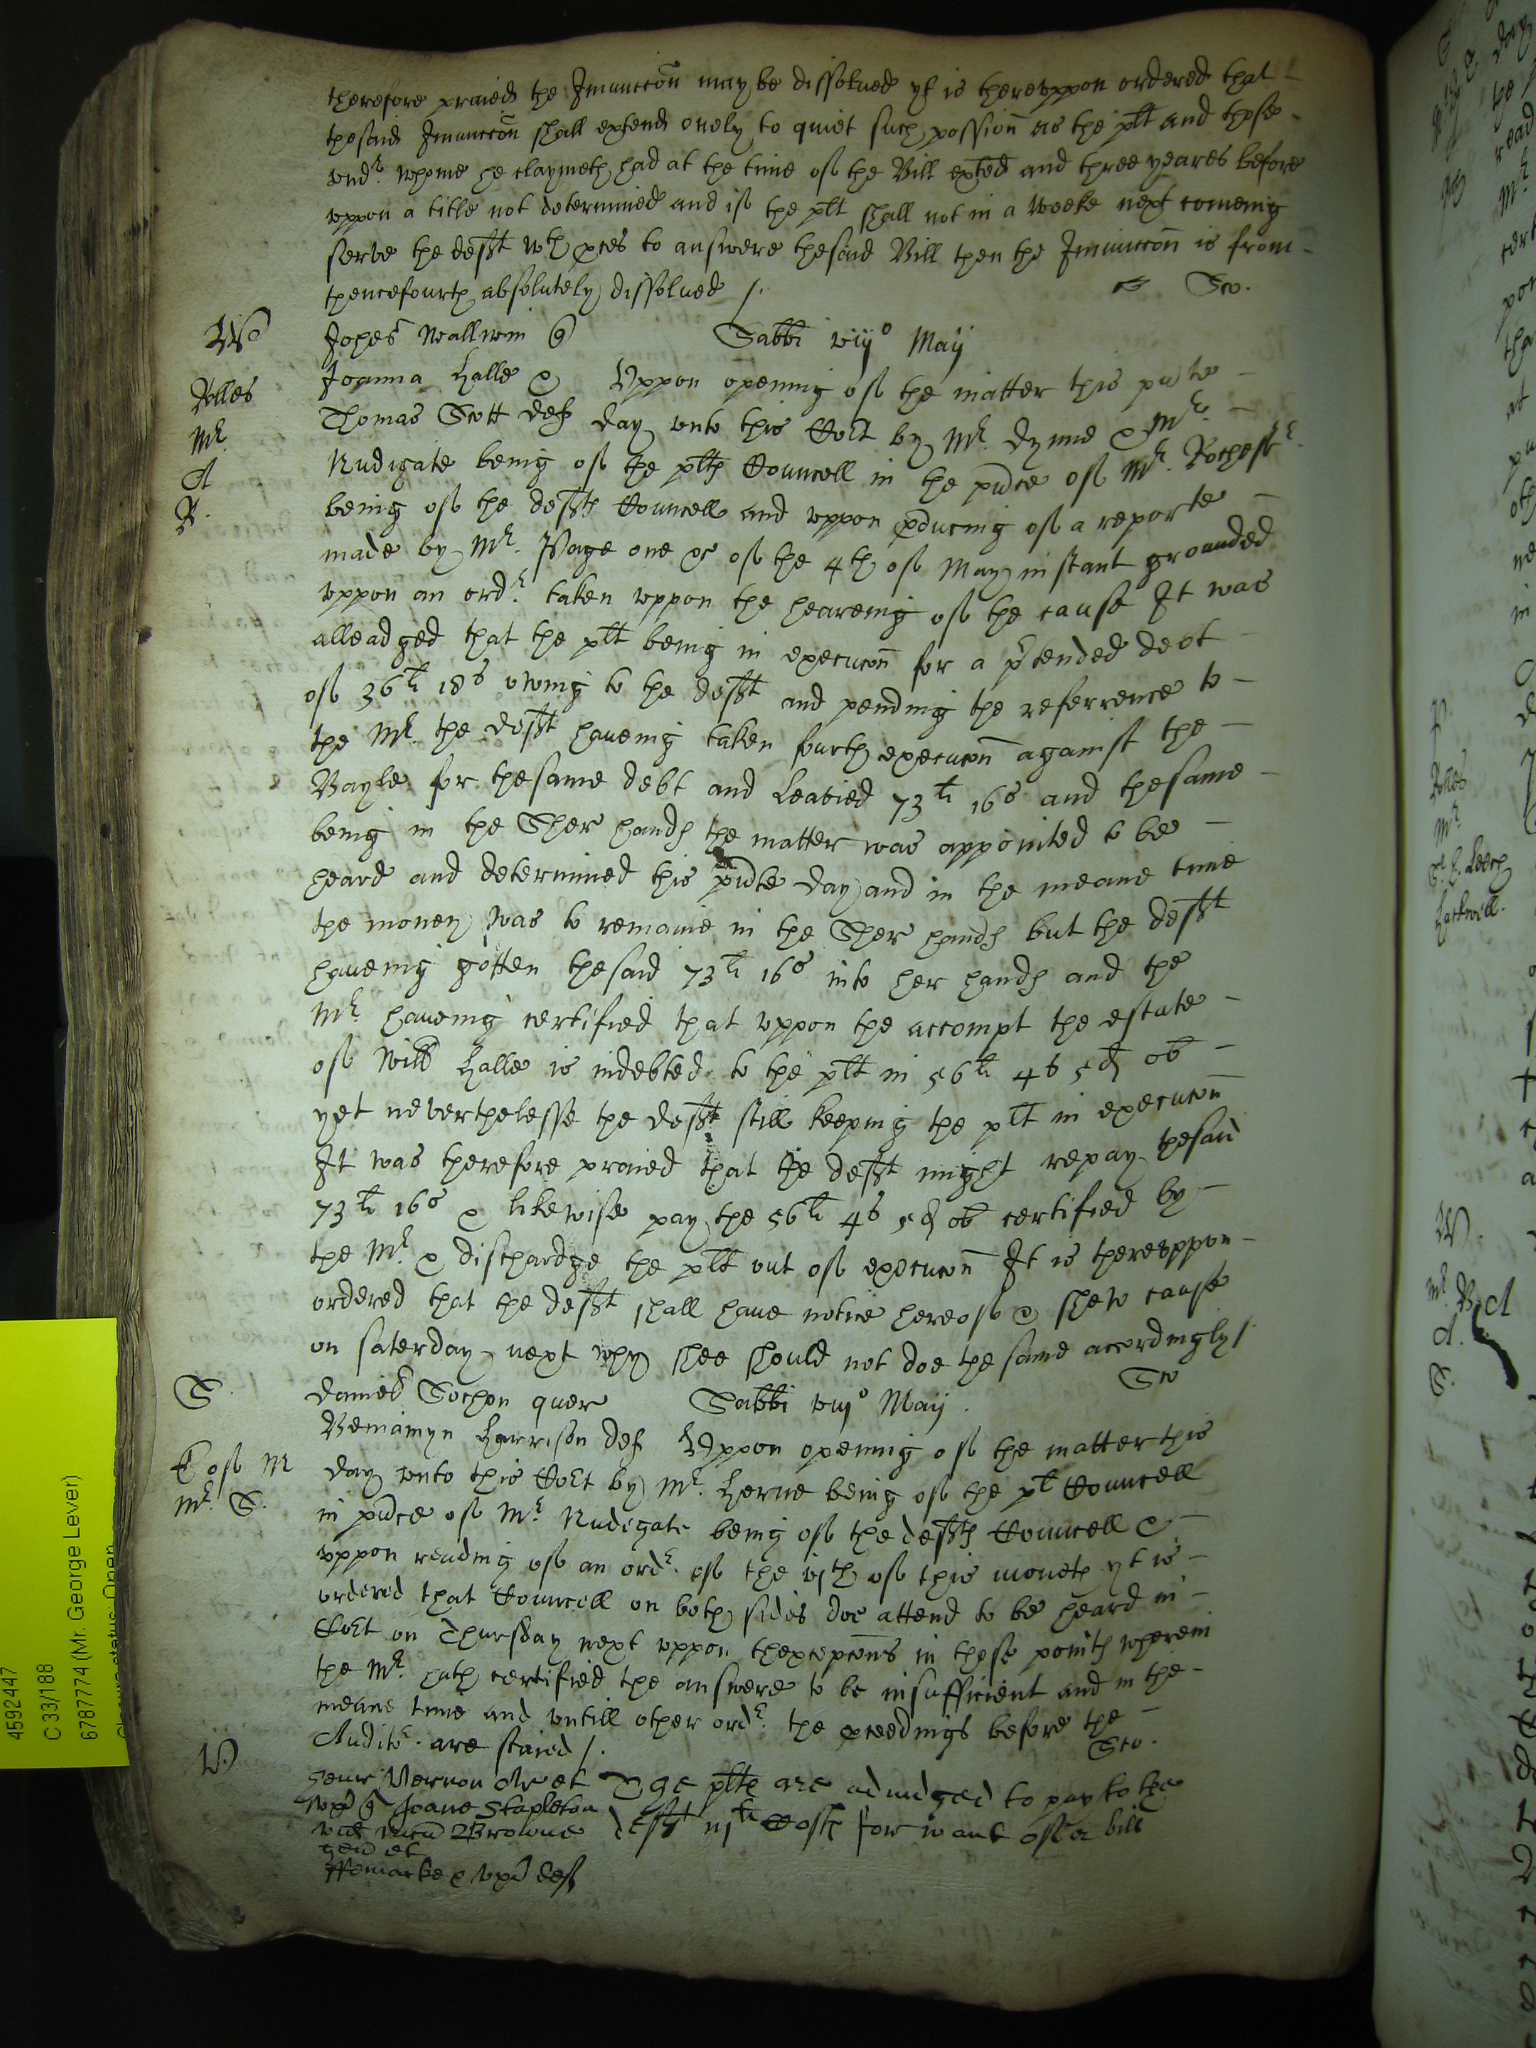 therefore praied the Iniunccon may be dissolued yt is therevppon ordered that
thesaid Iniunccon shall extend onely to quiet such possion as the plt and those
vndr whome he claymeth had at the time of the Bill exted and three yeares before
vppon a title not determined and if the plt shall not in a weeke next comeing
serve the deft wth pces to answere thesaid Bill then the Iniunccon is from
thencefourth absolutely dissolued /.
W Johes Wallwin q Sabbi viijo Maij
Joanna Halle &
Rolles Thomas Scott def Vppon opening of the matter this pnte
Mr day vnto this Cort by Mr Dynne & Mr
A Rudigate being of the plts Councell in the pnce of Mr Rochestr
R. being of the defts Councell and vppon pducing of a reporte
made by Mr Page one &c of the 4th of May instant grounded
vppon an ordr taken vppon the heareing of the cause It was
alleadged that the plt being in execucon for a ptended debt
of 36li 18s owing to the deft and pending the referrence to
the Mr the deft haueing taken fourth execucon against the
Bayle for thesame debt and leavied 73li 16s and thesame
being in the Sher hands the matter was appointed to be
heard and determined this pnte day and in the meane time
the money was to remaine in the Sher hands but the deft
haueing gotten thesaid 73li 16s into her hands and the
Mr haueing certified that vppon the accompt the estate
of Will Halle is indebted to the plt in 56li 4s 5d ob
yet neverthelesse the deft still keeping the plt in execucon
It was therefore praied that the deft might repay thesaid
73li 16s & likewise pay the 56li 4s 5d ob certified by
the Mr & dischardge the plt out of execucon It is therevppon
ordered that the deft shall haue notice hereof & shew cause
on saterday next why shee should not doe the same accordingly /.
S. Daniel Sochon quer Sabbi viijo Maij.
Beniamyn Harrison def Vppon opening of the matter this
day vnto this Cort by Mr Herne being of the plt Councell
Mr S. in pnce of Mr Rudigate being of the defts Councell &
vppon reading of an ordr of the vjth of this moneth yt is
ordered that Councell on both sides doe attend to be heard in
Cort on Thursday next vppon thexcepcons in those points wherein
the Mr hath certified the answere to be insufficient and in the
meane time and vntill other ordr the pceedings before the
Auditr are staied /.
W Henr Vernon Ar et The plts are adiudged to pay to the
vx q Joane Stapleton deft costs for want of a bill
vid Browne
gen et